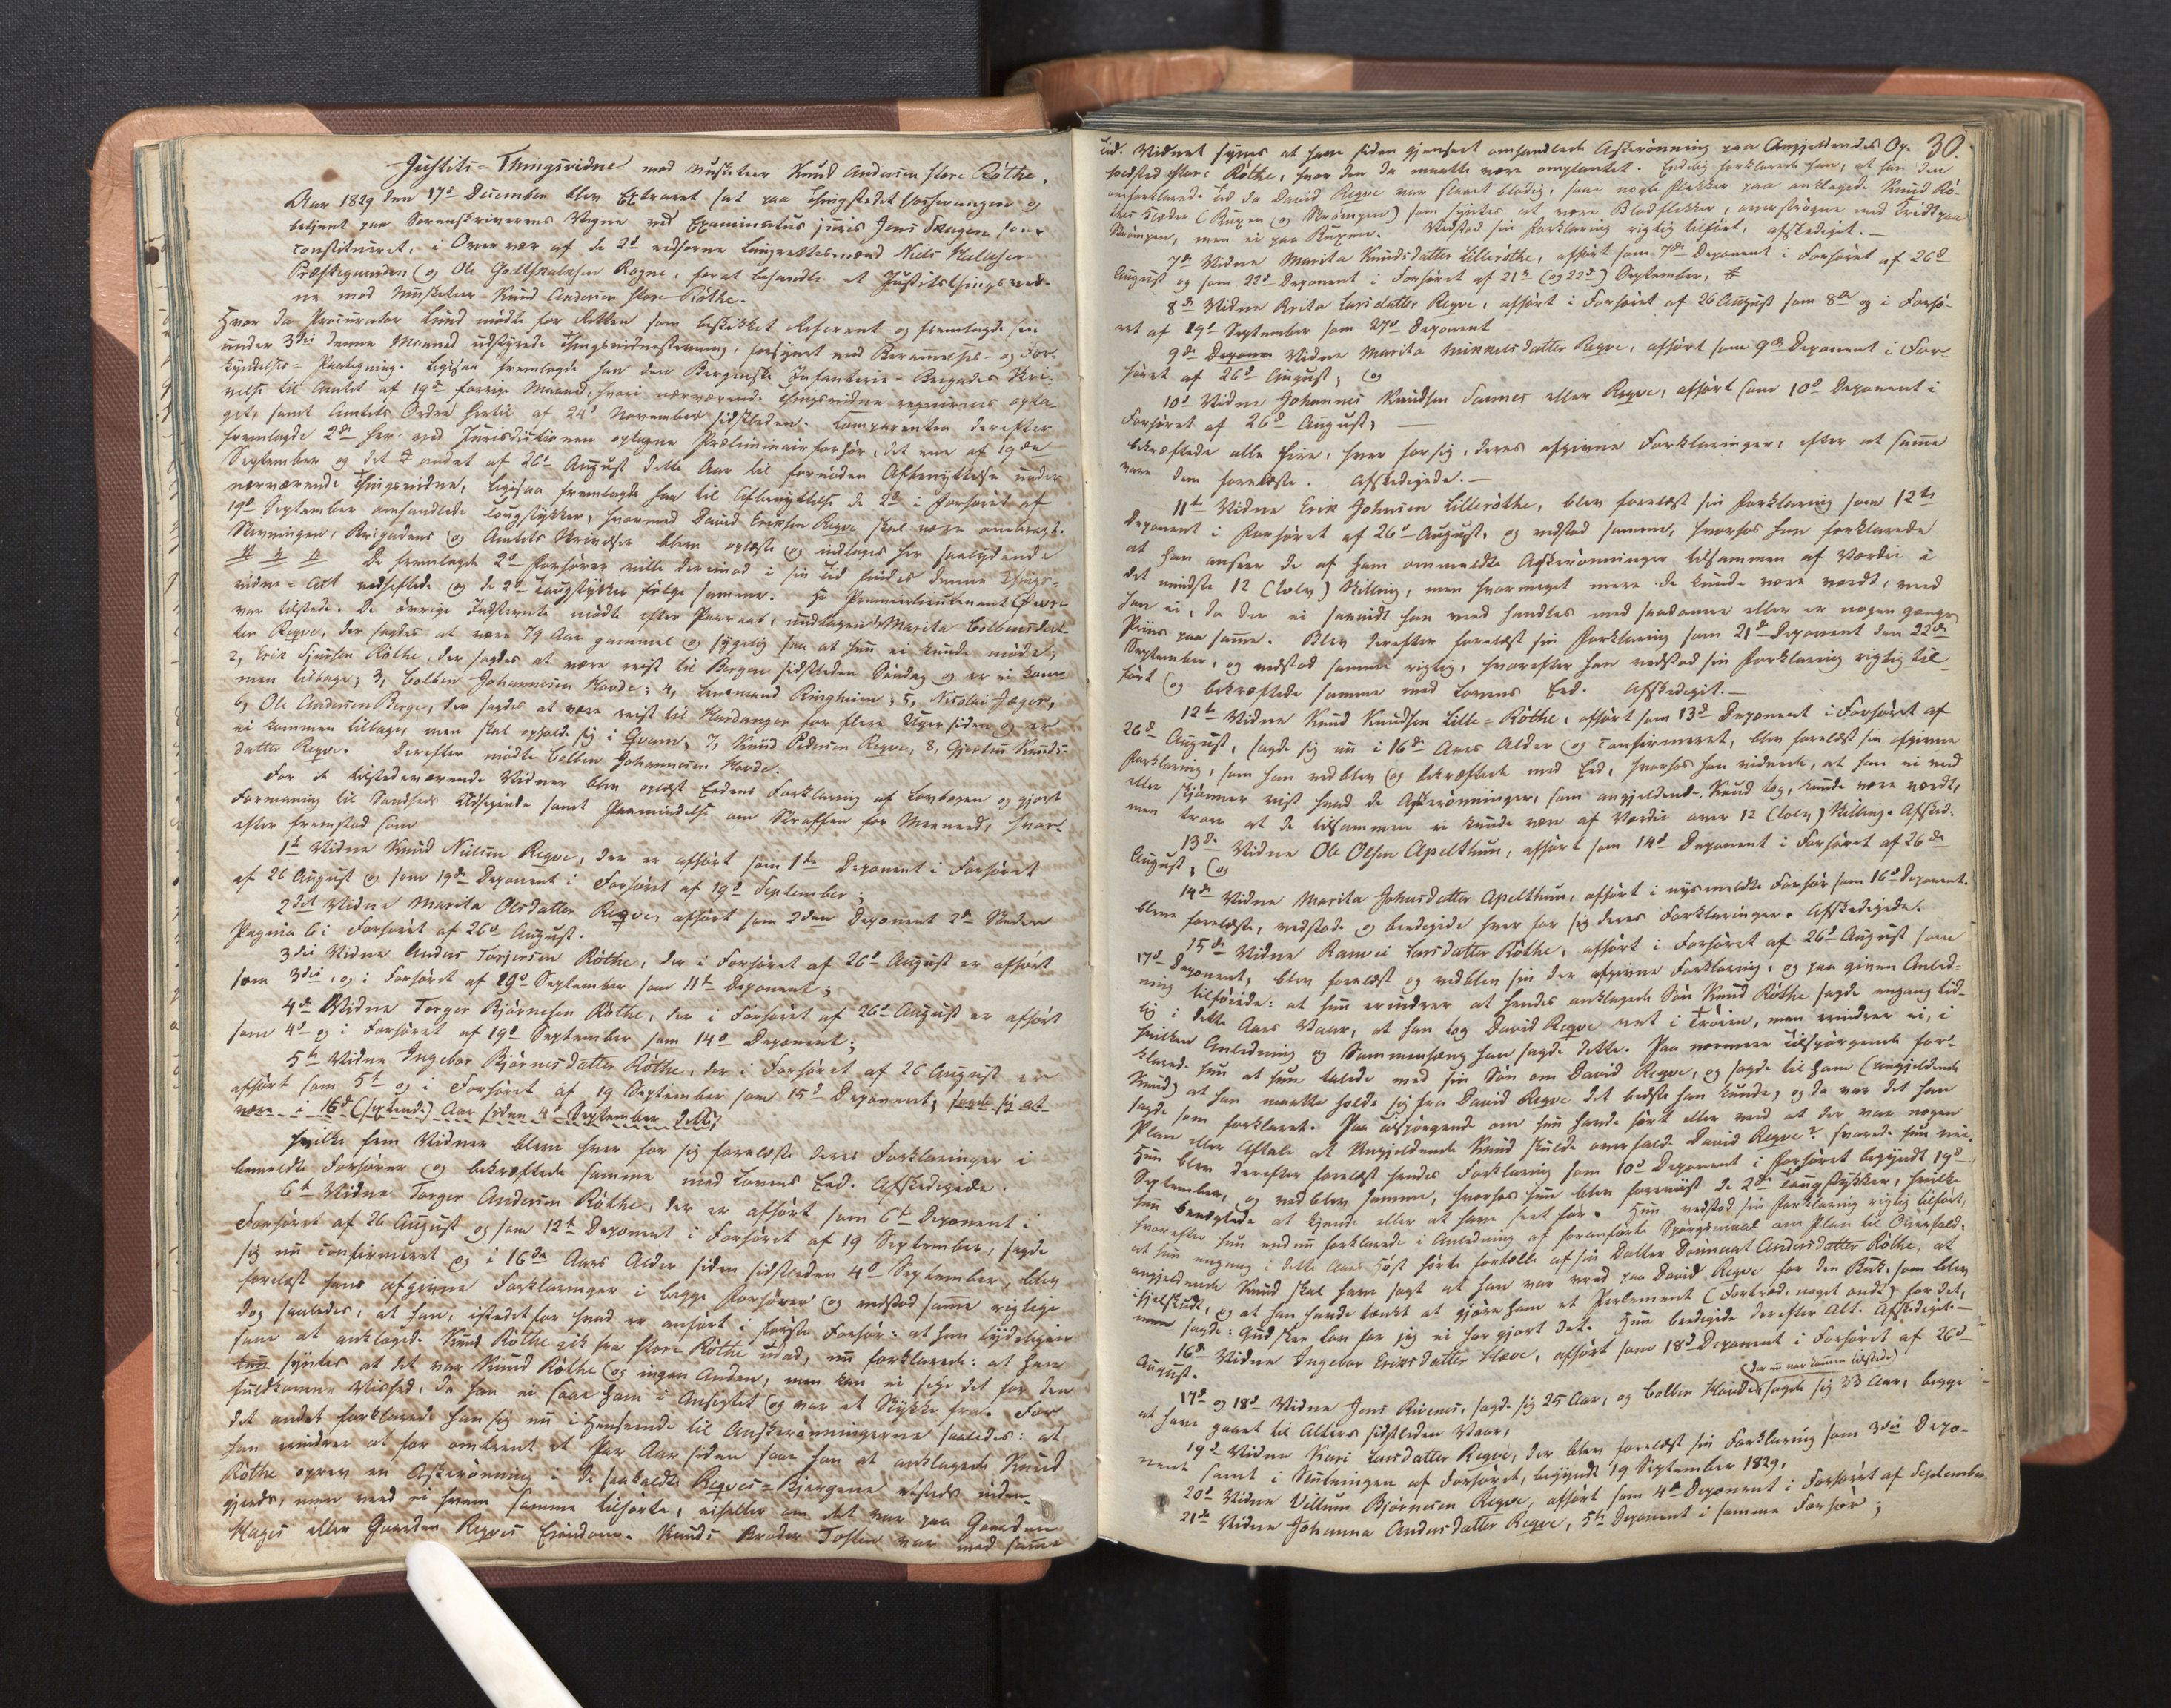 Justits-Thingsvidne mod Musketeer Knud Andersen store Röthe.
Aar 1829 den 17d December blev Extraret sat paa Thingstedet Vossevangen og
betjent paa Sorenskriverens Vegne ved Examinatus juris Jens Skagen, som
constitueret, i Overvær af de 2de edsvorne Laugrettesmænd Niels
Præstegaarden og Ole Godtskalksen Rogne, for at behandle et Justitsthingsvid-
ne mod Musketeer Knud Andersen store Röthe.
Hvor da Procurator Lund mödte for Retten som beskikket Referent og fremlagde sin
under 3die denne Maaned udstædte Thingsvidnestævning, forsynet med Berammelses- og For-
kyndelses-Paategning. Ligesaa fremlagde han den Bergenske Infanterie-Brigades Skri-
velse til Amtet af 19de forrige Maaned, hvori nærværende Thingsvidne requireres opta-
get, samt Amtets Ordre hertil af 24d November sidstleden. Comparenten derefter
fremlagde 2de her ved Jurisdictionen optagne Præliminairforhör, det ene af 19de
September og det andet af 26d August dette Aar til fornöden Afbenyttelse under
nærværende Thingsvidne, ligesaa fremlagde han til Afbenyttelse de 2de i Forhöret af
19d September omhandlede Laugstykker, hvormed David Eriksen Reqve skal være ombragt.
Stævningen, Brigadens og Amtets Skrivelser blev oplæste og indtages her saalydende
De fremlagte 2de Forhörer ville derimod i sin Tid findes denne Things-
vidne-Act vedheftede og de 2de Laugstykker fölge samme. Hr Premierlieutenant
var tilstede. De övrige Indstevnte mödte efter Paaraab, undtagen 1, Marita Colbeinsdat-
ter Reqve, der sagdes at være 79 Aar gammel og sygelig saa at hun ei kunde möde;
2, Erik Sjursen Röthe, der sagdes at være reist til Bergen sidstleden Söndag og er ei kom-
men tilbage; 3, Colbein Johannesen Havde; 4, Lensmand Ringheim; 5, Nicolai Jæger,
6, Ole Andersen Berge, der sagdes at være reist til Hardanger for flere Uger siden og er
ei kommen tilbage, men skal opholde sig i Qvam, 7, Knud Pedersen Reqve, 8, Gjertru Knuds-
datter Reqve. Derefter mödte Colbein Johannesen Havde.
For de tilstedeværende Vidner blev oplæst Eedens Forklaring af Lovbogen og gjort
Formaning til Sandheds Udsigende samt Paamindelse om Straffen for Meeneed, hvor-
efter fremstod som
1te Vidne Knud Nielsen Reqve, der er afhört som 1te Deponent i Forhöret
af 26 August og som 19de Deponent i Forhöret af 19d September;
2det Vidne Marita Olsdatter Reqve, afhört som 2den Deponent 2de Steder
Pagina 6 i Forhöret af 26d August.
3die Vidne Anders Torjersen Röthe, der i Forhöret af 26d August er afhört
som 3die, og i Forhöret af 19d September som 11te Deponent;
4de Vidne Torger Björnesen Röthe, der i Forhöret af 26d August er afhört
som 4d og i Forhöret af 19d September som 14d Deponent;
5te Vidne Ingebor Björnesdatter Röthe, der i Forhöret af 26 August er
afhört som 5te og i Forhöret af 19 September som 15d Deponent, sagde sig at
være i 16d Aar siden 4d September dette;
hvilke fem Vidner bleve hver for sig forelæste deres Forklaringer i
bemeldte Forhörer og bekræftede samme med Lovens Eed. Afskedigede.
6te Vidne Torger Andersen Röthe, der er afhört som 6te Deponent i
Forhöret af 26 August og som 12te Deponent i Forhöret af 19 September, sagde
sig nu confirmeret og i 16de Aars Alder siden sidstleden 4d September, blev
forelæst hans afgivne Forklaringer i begge Forhörer og vedstod samme rigtige
dog saaledes, at han, istedetfor hvad er anfört i förste Forhör: at han tydeligen
saae at anklagede Knud Röthe gik fra store Röthe udad, nu forklarede: at ham
syntes at det var Knud Röthe og ingen Anden, men kan ei sige det for den
fuldkomne Vished, da han ei saae ham i Ansigtet og var et Stykke fra. For
det andet forklarede han sig nu i Henseende til Askerönningerne saaledes: at
han erindrer at for omtrent et Par Aar siden saae han at anklagede Knud
Röthe oprev en Askerönning i de saakaldte Reqves-Bjergene etsteds uden-
gjærds, men veed ei hvem samme tilhörte, eiheller om det var paa Gaarden
Hages eller Gaarden Reqves Eiendom. Knuds Broder Tosten var med samme
30.
Tid. Vidnet synes at have siden gjenseet omhandlede Askerönning paa Angjeldendes Op-
holdsted store Röthe, hvor den da maatte være omplantet. Endelig forklarede han, at han den
omforklarede Tid da David Reqve var slaaet blodig, saae nogle Flekker paa anklagede Knud Rö-
thes Klæder (Buxen og Strömpen) som syntes at være Blodflekker, overströgne med Kridt paa
Strömpen, men ei paa Buxen. Vedstod sin Forklaring rigtig tilfört, afskediget.—
7de Vidne Marita Knudsdatter Lilleröthe, afhört som 7de Deponent i Forhöret af 26d
August og som 22de Deponent i Forhöret af 21de (og 22de) September,
8de Vidne Brita Larsdatter Reqve, afhört i Forhöret af 26 August som 8de og i Forhö-
ret af 19d September som 27d Deponent
9de Vidne Marita Mikkelsdatter Reqve, afhört som 9de Deponent i For-
höret af 26d August; og
10d Vidne Johannes Knudsen Sannes eller Reqve, afhört som 10d Deponent i
Forhöret af 26d August, —
bekræftede alle fire, hver for sig, deres afgivne Forklaringer, efter at samme
vare dem forelæste. Afskedigede.—
11te Vidne Erik Johnsen Lilleröthe, blev forelæst sin Forklaring som 12te
Deponent i Forhöret af 26d August, og vedstod samme, hvorhos han forklarede
at han anseer de af ham ommeldte Askerönninger tilsammen af Værdie i
det mindste 12 (tolv) Skilling, men hvormeget mere de kunde være værdt, veed
han ei, da der ei saavidt han veed handles med saadanne eller er nogen gangs
Priis paa samme. Blev derefter forelæst sin Forklaring som 21de Deponent den 22de
September, og vedstod samme rigtig, hvorefter han vedstod sin Forklaring rigtig til-
fört og bekræftede samme med Lovens Eed. Afskediget.—
12te Vidne Knud Knudsen Lille-Röthe, afhört som 13d Deponent i Forhöret af
26d August, sagde sig nu i 16de Aars Alder og confirmeret, blev forelæst sin afgivne
Forklaring, som han vedblev og bekræftede med Eed, hvorhos han vidnede, at han ei veed
eller skjönner vist hvad de Askerönninger, som angjeldende Knud tog, kunde være værdt,
men troer at de tilsammen ei kunde være af Værdie over 12 (tolv) Skilling. Afsked:
13de Vidne Ole Olsen Apelthun, afhört som 14d Deponent i Forhöret af 26de
August, og
14de Vidne Marita Johnsdatter Apelthun, afhört i nysmeldte Forhör som 16d Deponent.
bleve forelæste, vedstode og beedigede hver for sig deres Forklaringer. Afskedigede.
15de Vidne Ranvei Larsdatter Röthe, afhört i Forhöret af 26d August som
17d Deponent, blev forelæst og vedblev sin der afgivne Forklaring, og paa given Anled-
ning tilföiede: at hun erindrer at hendes anklagede Sön Knud Röthe sagde engang tid-
lig i dette Aars Vaar, at han tog David Reqve net i Tröien, men erindrer ei, i
hvilken Anledning og Sammenhæng han sagde dette. Paa nærmere Tilspörgende for-
klarede hun at hun talede med sin Sön om David Reqve, og sagde til ham (angjeldende
Knud) at han maatte holde sig fra David Reqve det bedste han kunde, og da var det han
sagde som forklaret. Paa Tilspörgende om hun havde hört eller veed at der var nogen
Plan eller Aftale at Angjeldende Knud skulde overfalde David Reqve? svarede hun nei.
Hun blev derefter forelæst hendes Forklaring som 10d Deponent i Forhöret begyndt 19d
September, og vedblev samme, hvorhos hun blev foreviist de 2de Laugstykker, hvilke
hun benægtede at kjende eller at have seet för. Hun vedstod sin Forklaring rigtig tilfört,
hvorefter hun endnu forklarede i Anledning af foranförte Spörgsmaal om Plan til Overfald:
at hun engang i dette Aars Höst hörte fortælle af sin Datter Andersdatter Röthe, at
angjeldende Knud skal have sagt at han var vred paa David Reqve for den Buk, som blev
ihjelskudt, og at han havde tænkt at gjöre ham et Perlement (Fortræd, noget ondt) for det,
men sagde: Gud skee Lov for jeg ei har gjort det. Hun beedigede derefter Alt. Afskediget.—
16de Vidne Ingebor Eriksdatter Cleve, afhört som 18d Deponent i Forhöret af 26d
August.
(der nu var kommen tilstede)
17d og 18d Vidne Jens Rivenes, sagde sig 25 Aar, og Colbein Havde, sagde sig 33 Aar, begge
at have gaaet til Alters sidstleden Vaar,
19d Vidne Kari Larsdatter Reqve, der blev forelæst sin Forklaring som 3die Depo-
nent samt i Slutningen af Forhöret, begyndt 19 September 1829.
20d Vidne Villum Björnesen Reqve, afhört som 4de Deponent i Forhöret af September
21de Vidne Johanna Andersdatter Reqve, 5te Deponent i samme Forhör;